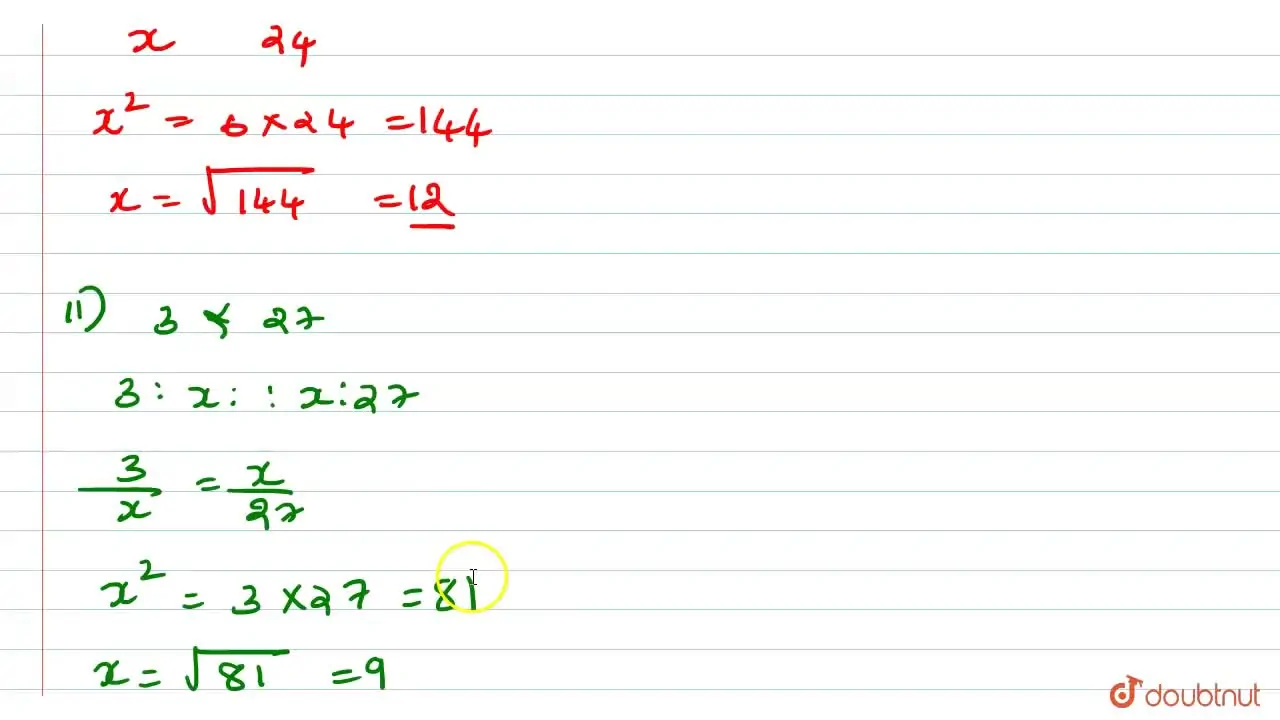 x 24
x² = 6 × 24 = 144
x = √144 = 12
11) 3 & 27
3 : x : : x : 27
3/x = x/27
x² = 3 × 27 = 81
x = √81 = 9
doubtnut